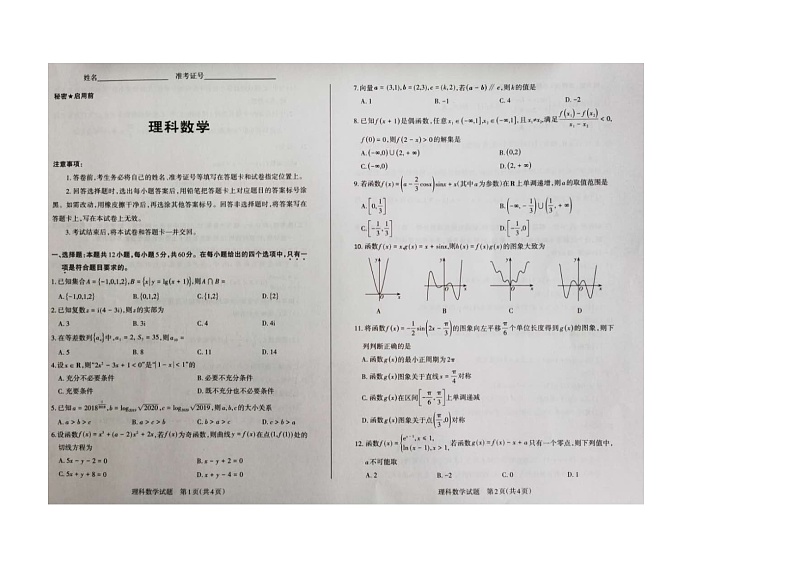 姓名 准考证号
秘密★启用前
理科数学
注意事项:
1. 答卷前,考生务必将自己的姓名、准考证号等填写在答题卡和试卷指定位置上。
2. 回答选择题时,选出每小题答案后,用铅笔把答题卡上对应题目的答案标号涂
黑。如需改动,用橡皮擦干净后,再选涂其他答案标号。回答非选择题时,将答案写在
答题卡上,写在本试卷上无效。
3. 考试结束后,将本试卷和答题卡一并交回。
一、选择题:本题共12小题,每小题5分,共60分。在每小题给出的四个选项中,只有一
项是符合题目要求的。
1. 已知集合A={-1,0,1,2},B={x|y=lg(x+1)},则A∩B=
A.{-1,0,1,2} B.{0,1,2} C.{1,2} D.{2}
2. 已知复数z=i(4-3i),则z的实部为
A. 3 B. 3i C. 4 D. 4i
3. 在等差数列{aₙ}中,a₂=2, S₇=35,则a₁₀=
A. 5 B. 8 C. 11 D. 14
4. 设x∈R,则“2x²-3x+1<0”是“|1-x|<1”的
A. 充分不必要条件 B. 必要不充分条件
C. 充要条件 D. 既不充分也不必要条件
5. 已知a=2018 ,b=log √2020,c=log √2019,则a,b,c的大小关系
A. a>b>c B. a>c>b C. b>a>c D. c>b>a
6. 设函数f(x)=x³+(a-2)x²+2x,若f(x)为奇函数,则曲线y=f(x)在点(1,f(1))处的
切线方程为
A. 5x-y-2=0 B. x-y+2=0
C. 5x+y+8=0 D. x+y-4=0
理科数学试题 第1页(共4页)
7. 向量a=(3,1),b=(2,3),c=(k,2),若(a-b)∥c,则k的值是
A. 1 B. -1 C. 4 D. -2
8. 已知f(x+1)是偶函数,任意x₁∈(-∞,1],x₂∈(-∞,1],且x₁≠x₂,满足(f(x₁)-f(x₂))/(x₁-x₂)<0,
f(0)=0,则f(2-x)>0的解集是
A.(-∞,0)∪(2,+∞) B.(0,2)
C.(-∞,0) D.(2,+∞)
9. 若函数f(x)=(a-2/3cosx)sinx+x(其中a为参数)在R上单调递增,则a的取值范围是
A.[0,1/3] B.(-∞,-1/3)∪(1/3,+∞)
C.[-1/3,1/3] D.[-1/3,0]
10. 函数f(x)=x,g(x)=x+sinx,则h(x)=f(x)g(x)的图象大致为
A B C D
11. 将函数f(x)=-1/2sin(2x-π/3)的图象向左平移π/6个单位长度得到g(x)的图象,则下
列判断正确的是
A. 函数g(x)的最小正周期为2π
B. 函数g(x)图象关于直线x=π/4对称
C. 函数g(x)在区间[-π/6,π/3]上单调递减
D. 函数g(x)图象关于点(π/3,0)对称
12. 函数f(x)={eˣ⁻¹,x≤1, ln(x-1),x>1, 若函数g(x)=f(x)-x+a只有一个零点,则下列值中,
a不可能取
A. 2 B. -2 C. 0 D. 1
理科数学试题 第2页(共4页)